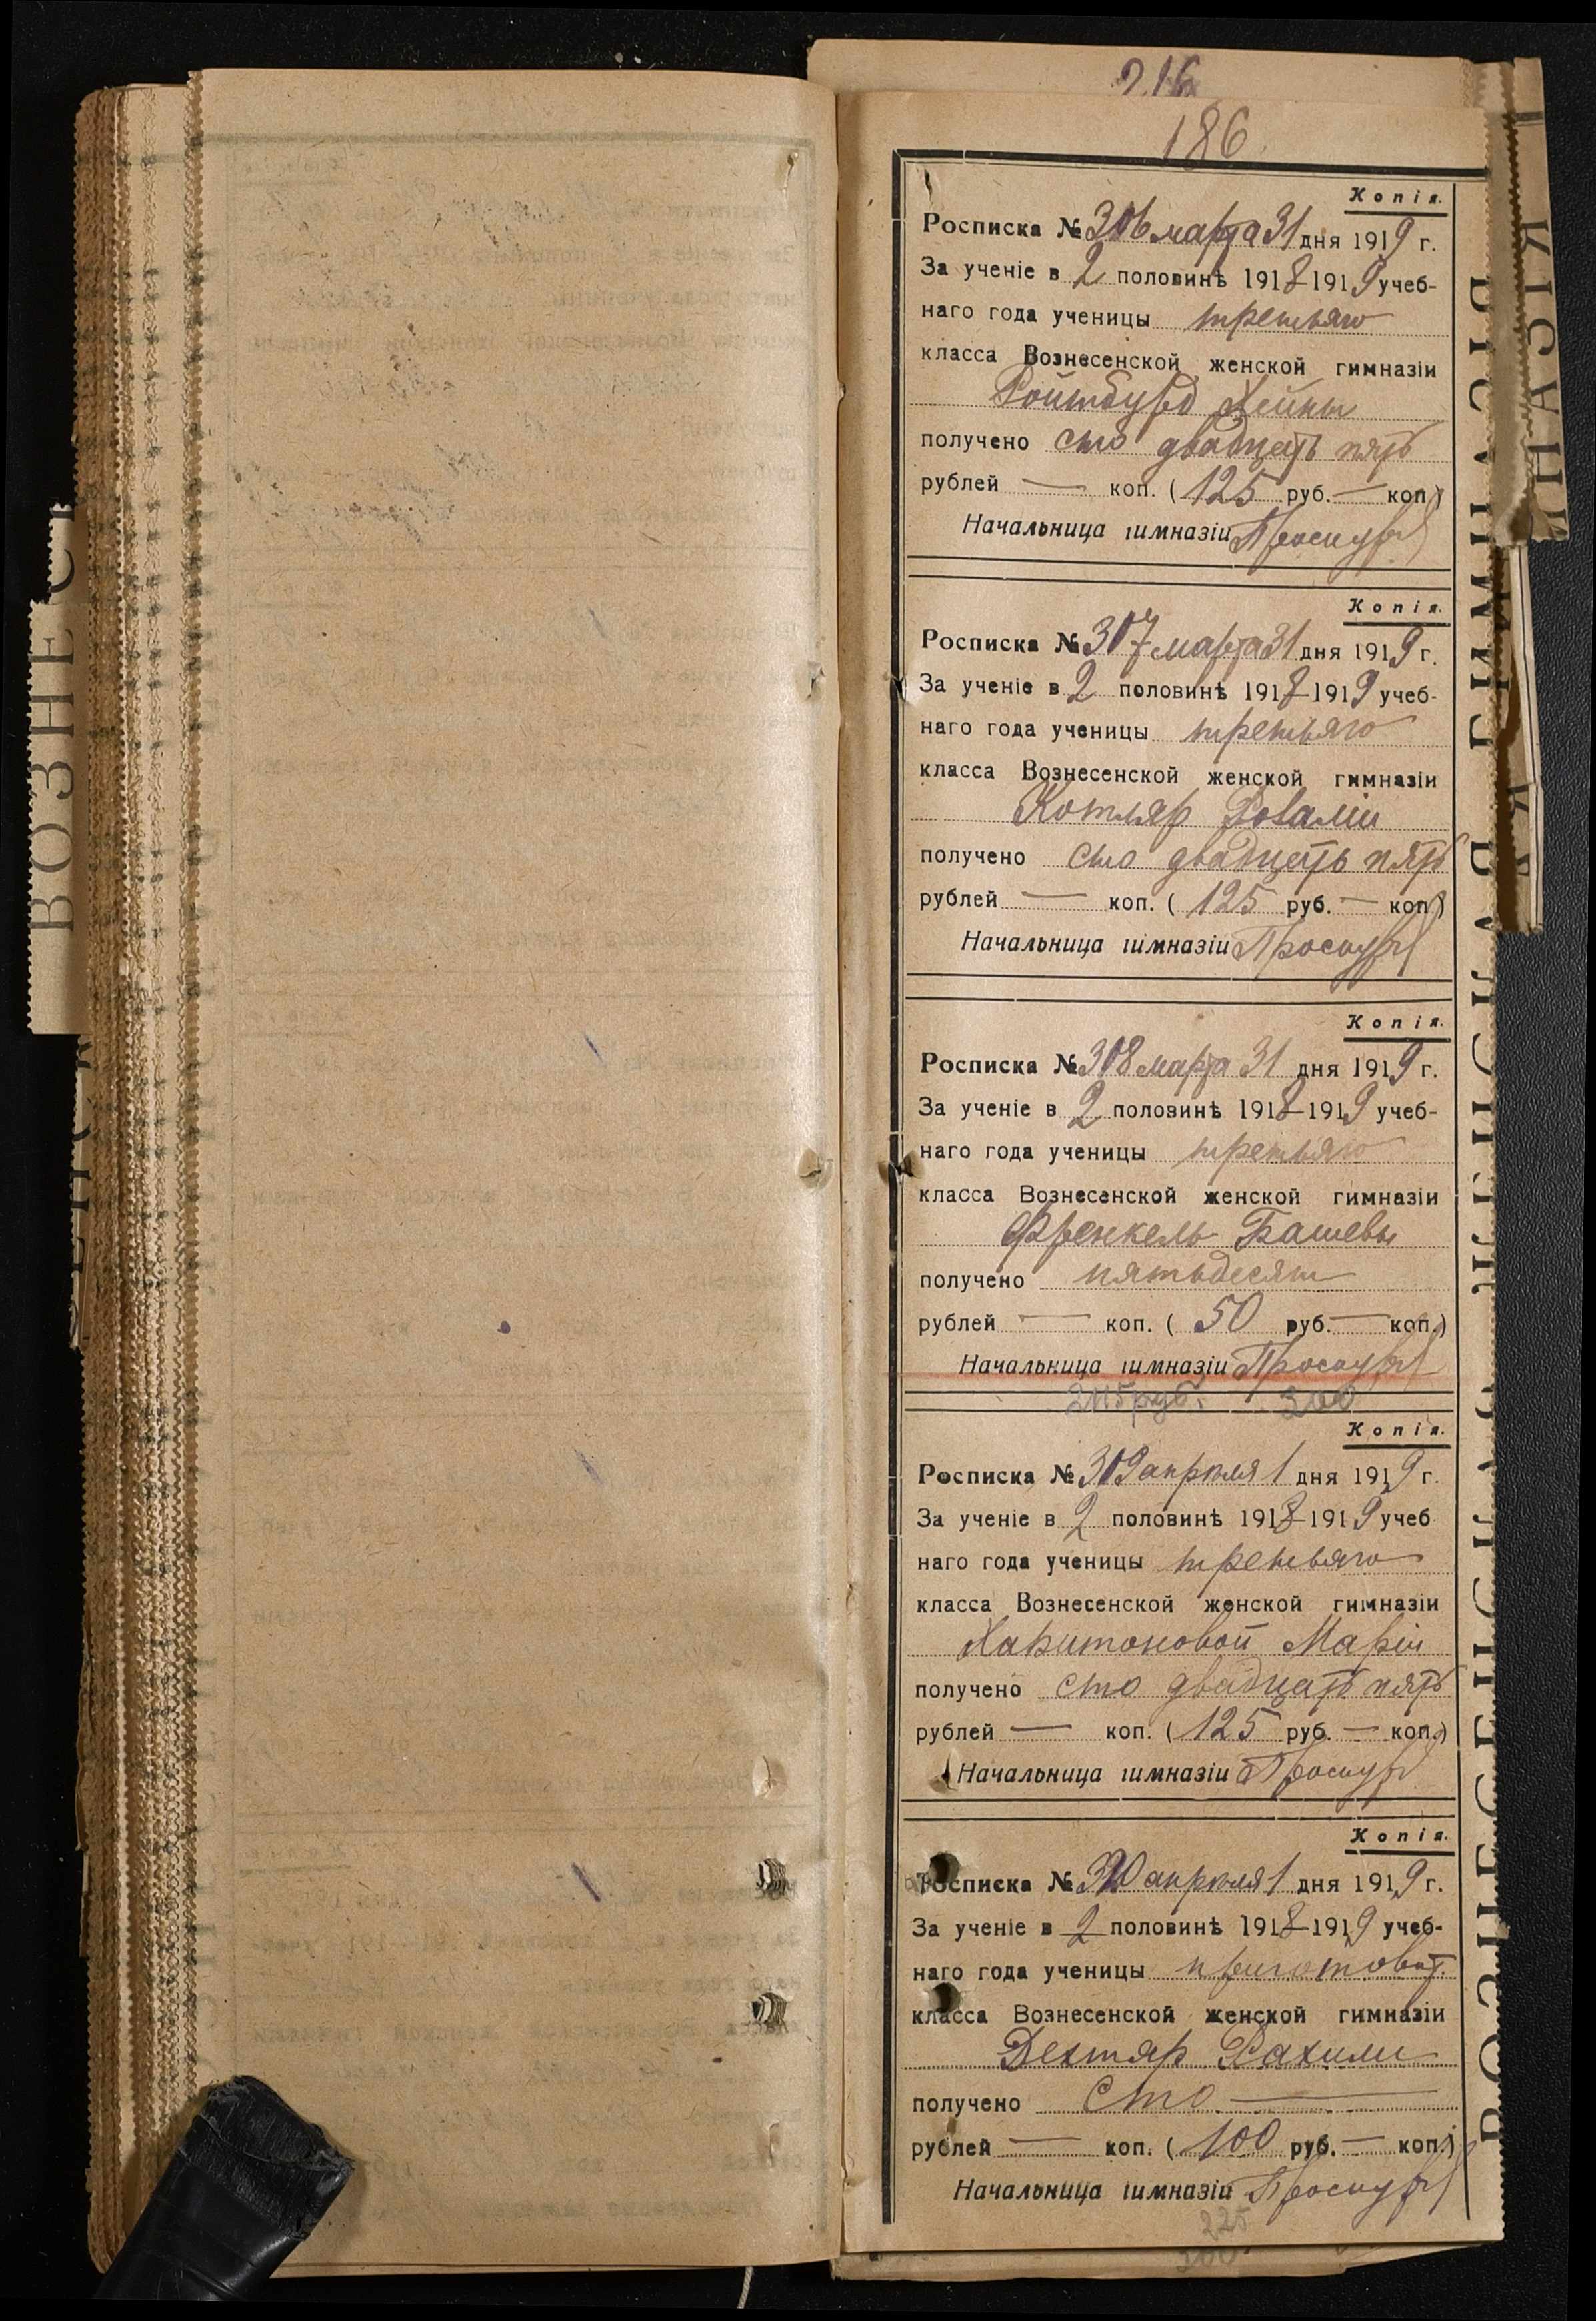 216
186
Копія.
Росписка № 306 марта 31 дня 1919 г.
За ученіе в 2 половинѣ 1918-1919 учеб-
наго года ученицы третьяго
класса Вознесенской женской гимназіи
Ройтбурд Хейны
получено сто двадцать пять
рублей — коп. (125 руб. — коп.)
Начальница гимназіи
Копія.
Росписка № 307 марта 31 дня 1919 г.
За ученіе в 2 половинѣ 1918-1919 учеб-
наго года ученицы третьяго
класса Вознесенской женской гимназіи
Котляр Розаліи
получено сто двадцать пять
рублей — коп. (125 руб. — коп.)
Начальница гимназіи
Копія.
Росписка № 308 марта 31 дня 1919 г.
За ученіе в 2 половинѣ 1918-1919 учеб-
наго года ученицы третьяго
класса Вознесенской женской гимназіи
Френкель Башевы
получено пятьдесят
рублей — коп. (50 руб. — коп.)
Начальница гимназіи
300
Копія.
Росписка № 309 апрѣля 1 дня 1919 г.
За ученіе в 2 половинѣ 1918-1919 учеб
наго года ученицы третьяго
класса Вознесенской женской гимназіи
Харитоновой Маріи
получено сто двадцать пять
рублей — коп. (125 руб. — коп.)
Начальница гимназіи
Копія.
Росписка № апрѣля 1 дня 1919 г.
За ученіе в 2 половинѣ 1918-1919 учеб-
наго года ученицы приготовит.
класса Вознесенской женской гимназіи
Дехтяр Рахили
получено сто —
рублей — коп. (100 руб. — коп.)
Начальница гимназіи
225
ВОЗНЕС